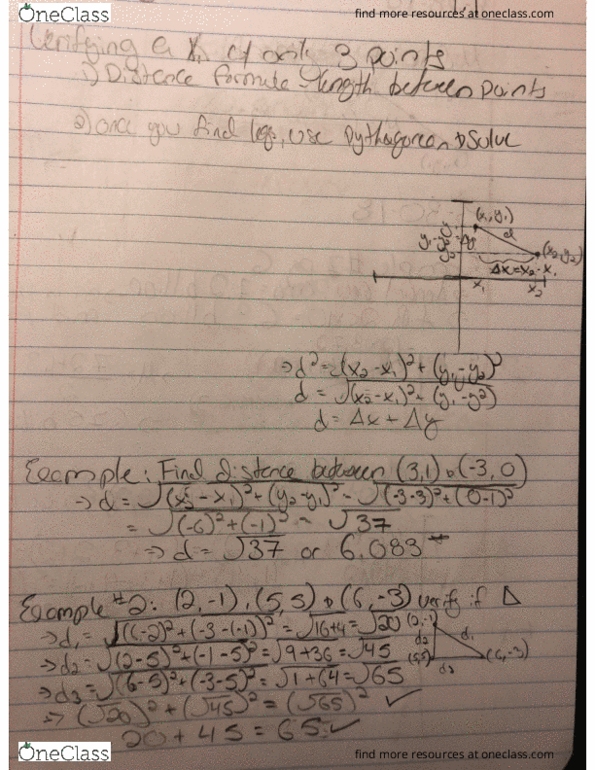 OneClass
find more resources at oneclass.com
Verifying a of only 3 points
1) Distance formula → length between points
2) once you find legs, use Pythagorean & Solve
(x₁, y₁)
d
(x₂, y₂)
Δx = x₂ - x₁
x₁ x₂
⇒ d² = (x₂ - x₁)² + (y₁ - y₂)²
d = √(x₂ - x₁)² + (y₁ - y²)
d = Δx + Δy
Example: Find distance between (3,1) & (-3,0)
→ d = √(x₂ - x₁)² + (y₂ - y₁)² = √(-3-3)² + (0-1)²
= √(-6)² + (-1)² = √37
⇒ d = √37 or 6.083
Example #2: (2,-1), (5,5) & (6,-3) verify if Δ
→ d₁ = √(6-2)² + (-3-(-1))² = √16+4 = √20
→ d₂ = √(2-5)² + (-1-5)² = √9+36 = √45
→ d₃ = √(6-5)² + (-3-5)² = √1+64 = √65
(2,-1)
d₂ d₁
(5,5) (6,-3)
d₃
⇒ (√20)² + (√45)² = (√65)² ✓
20 + 45 = 65 ✓
OneClass
find more resources at oneclass.com